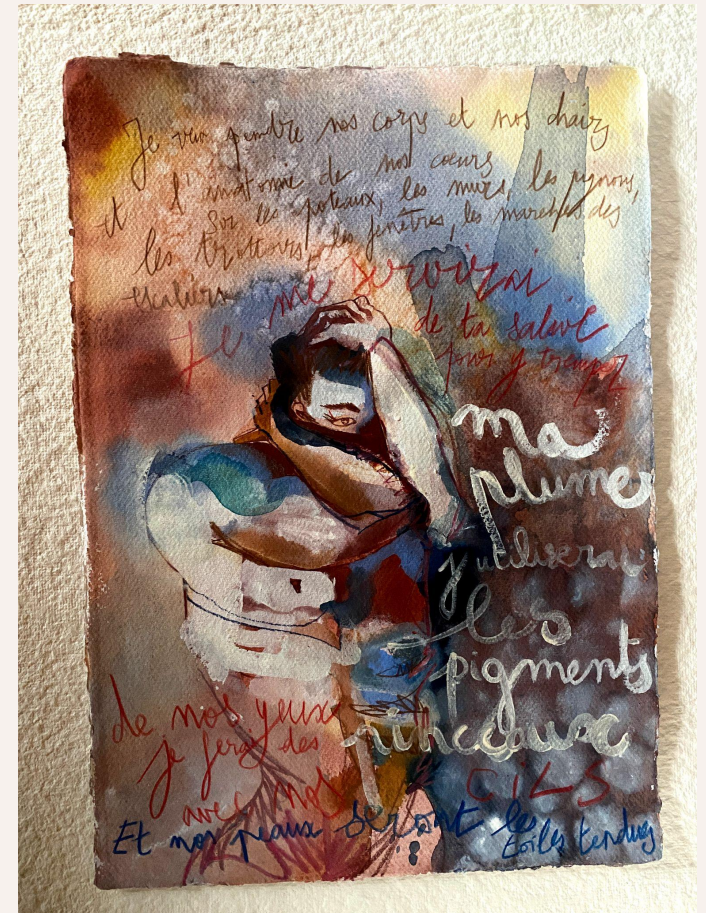 Je veux peindre nos corps et nos chairs
et l'anatomie de nos coeurs
Sur les poteaux, les murs, les pignons,
les trottoirs, les fenêtres, les marches des
escaliers
Je me servirai
de ta salive
pour y tremper
ma
plume
j'utiliserai
les
pigments
de nos yeux
je ferai des
pinceaux
avec nos
CILS
Et nos peaux seront les
toiles tendues